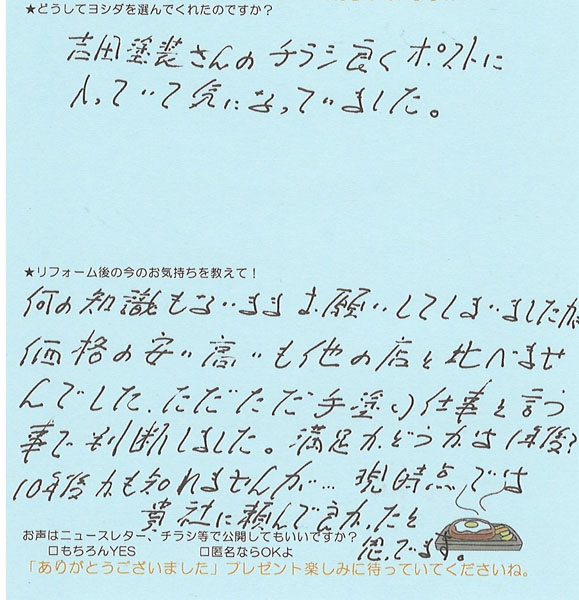 ★どうしてヨシダを選んでくれたのですか?
吉田塗装さんの チラシ良く ポストに
入っていて気になっていました。
★リフォーム後の今のお気持ちを教えて!
何の知識もないままお願いしてしまいましたが
価格の安い高いも他の店と比べませ
んでした、ただただ手塗り仕事と言う
事で判断しました。満足かどうかは1年後?
10年後かも知れませんが… 現時点では
貴社に頼んで良かったと
思ってます。
お声はニュースレター、チラシ等で公開してもいいですか?
□もちろんYES □匿名ならOKよ
「ありがとうございました」プレゼント楽しみに待っていてくださいね。